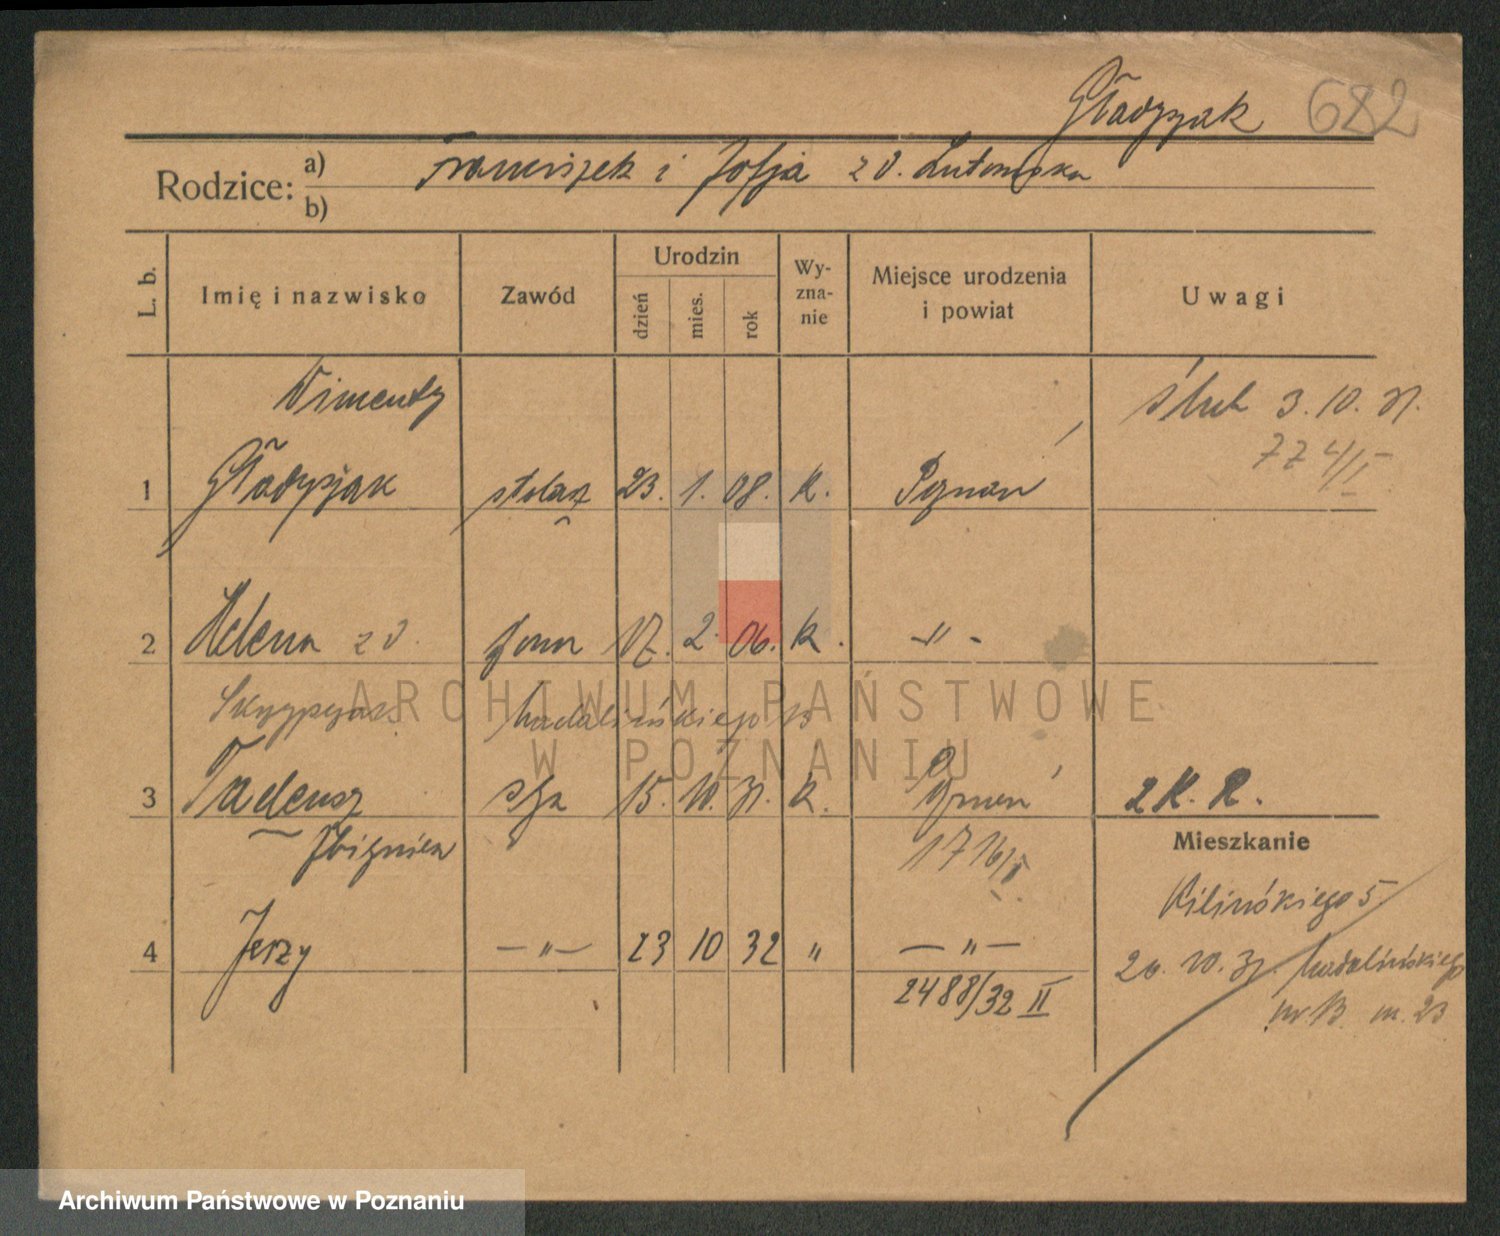 Gładyszak 682
Rodzice: a) Franciszek i Zofja z d. Lutomska
b)
L. b. Imię i nazwisko Zawód Urodzin dzień mies. rok Wyznanie Miejsce urodzenia i powiat Uwagi
ślub 3. 10. 31.
774/II
1 Gładyszak stolarz 23. 1. 08. k. Poznań
2 Helena z d. żona 17. 2. 06. k. -"-
Madalińskiego 13
3 Tadeusz syn 15. 10. 31. k. Poznań 2 K. R.
Zbigniew 1716/II
Mieszkanie
Kilińskiego 5
4 Jerzy -"- 23 10 32 " -"-
20. 10. 31. Madalińskiego
2488/32 II
nr. 13 m. 23
ARCHIWUM PAŃSTWOWE
W POZNANIU
Archiwum Państwowe w Poznaniu